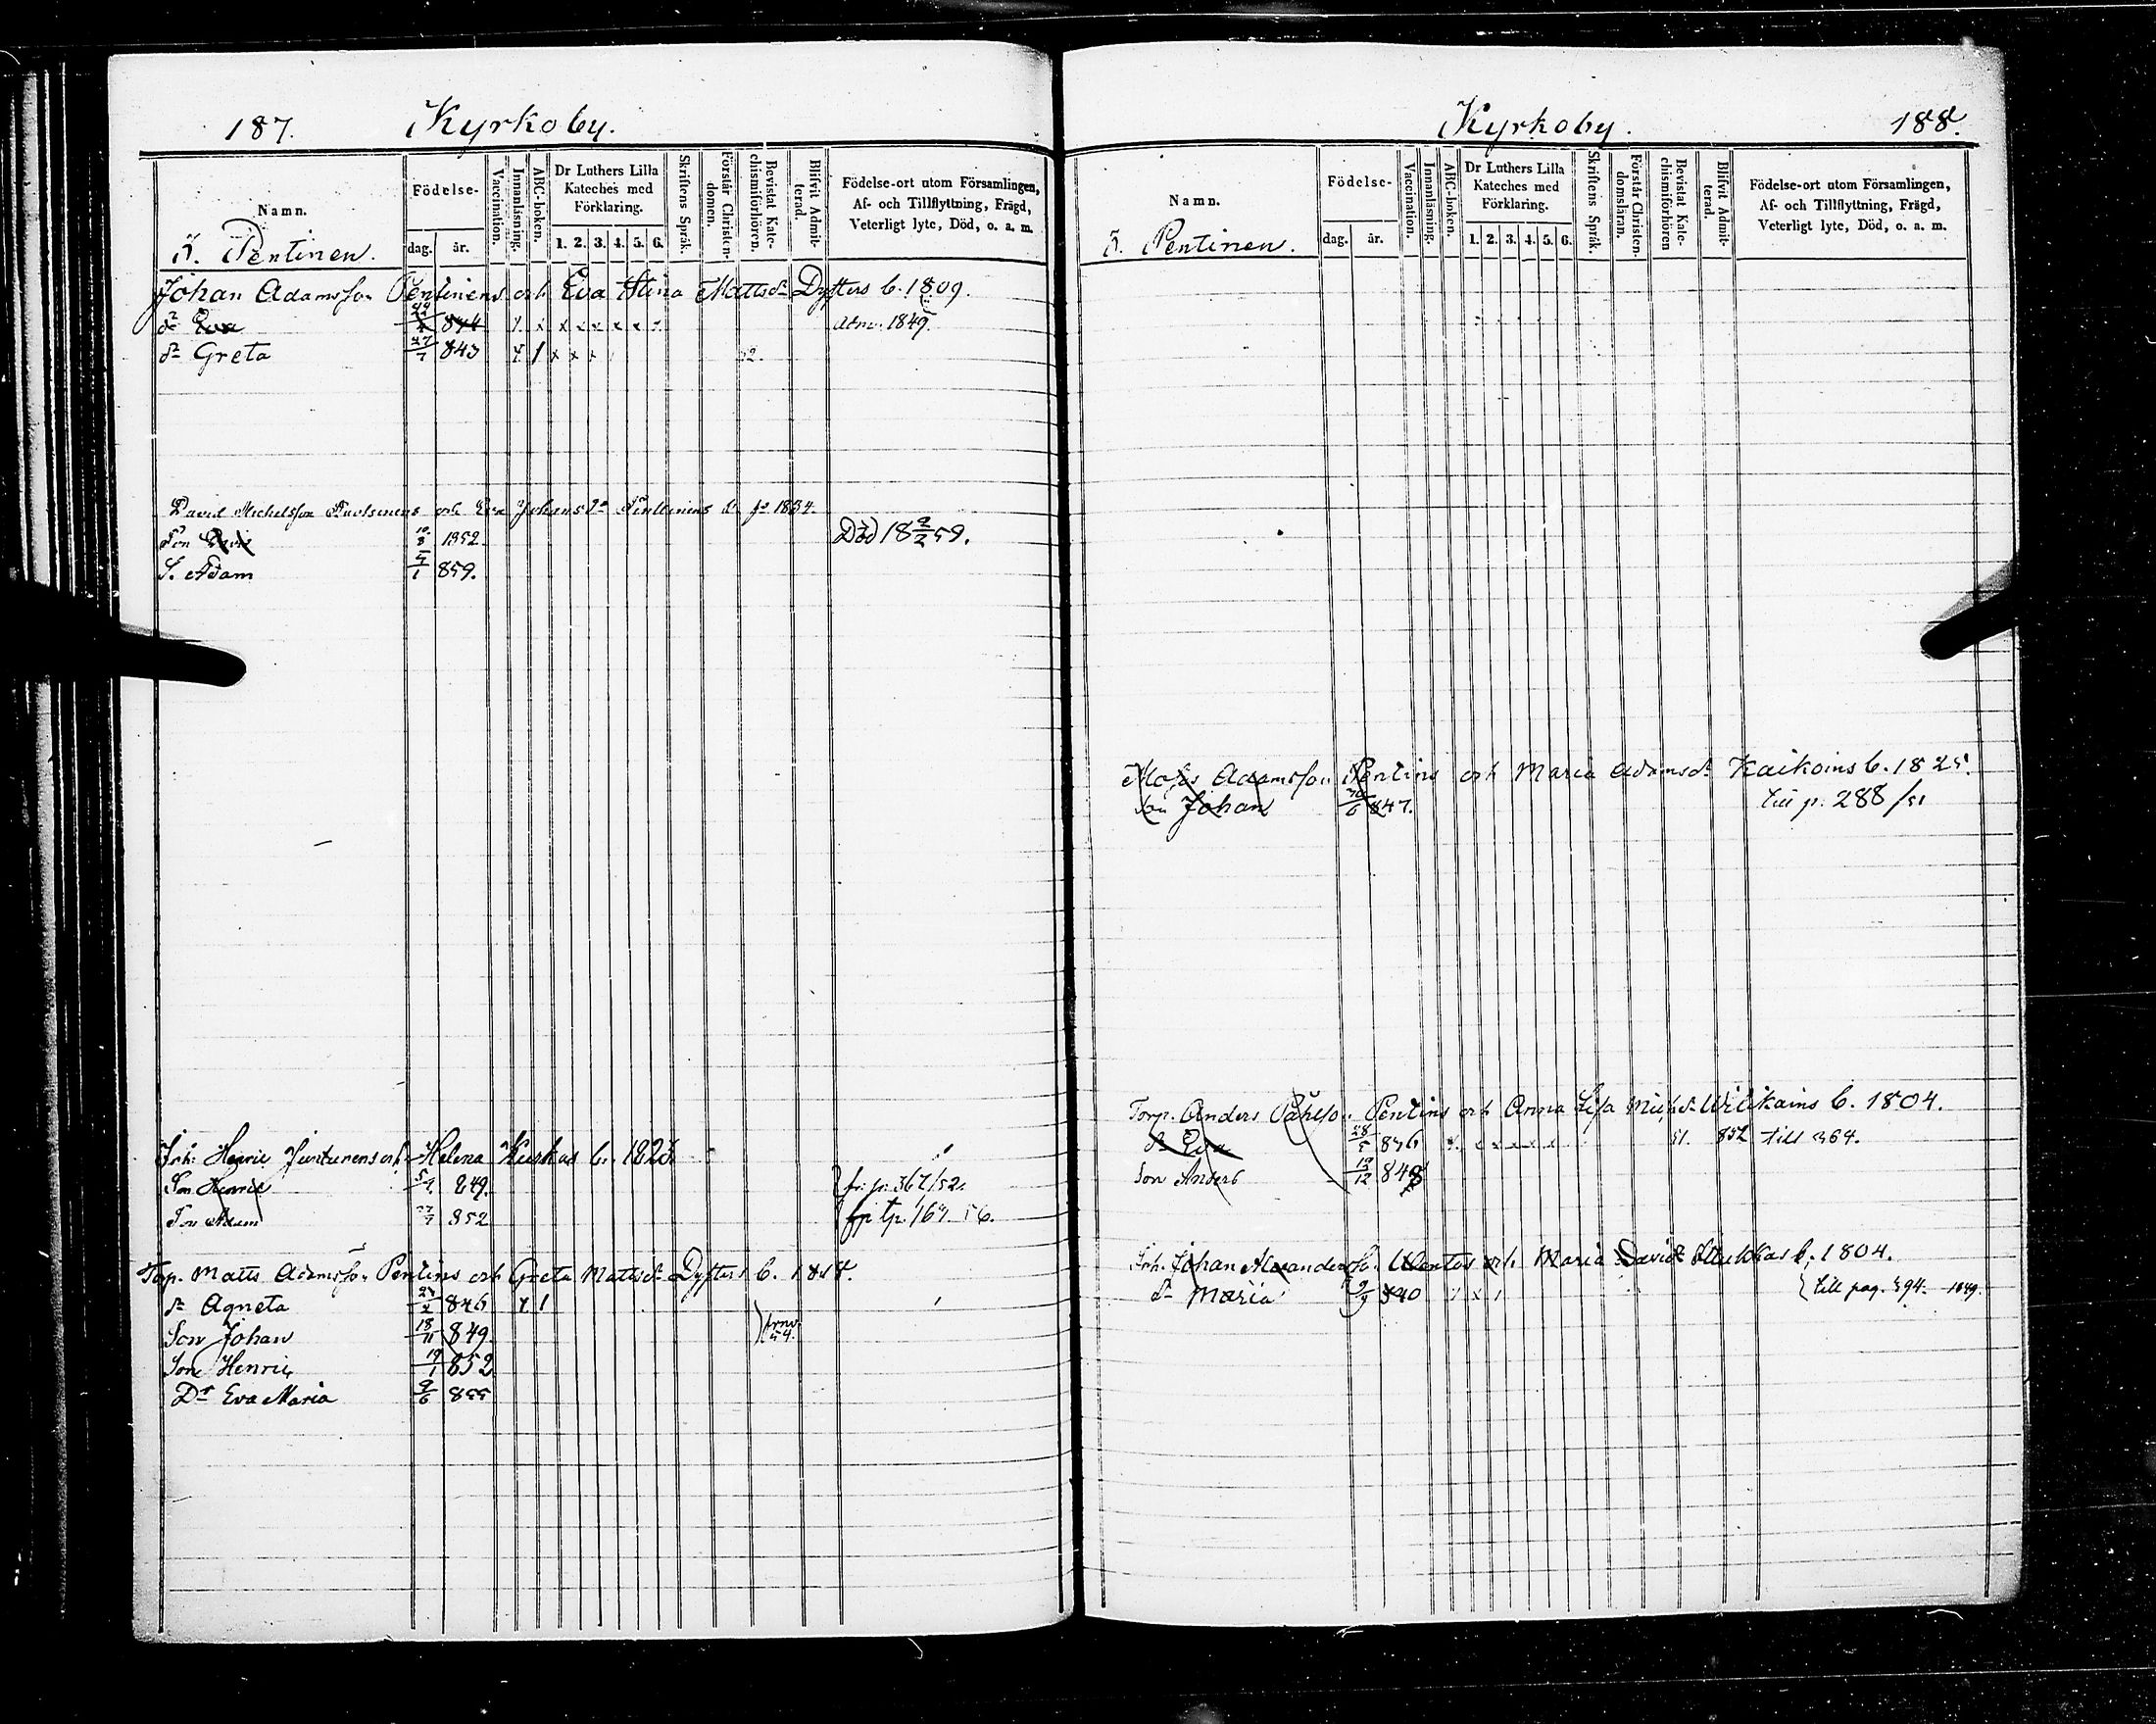 187. Kyrkoby.
Namn.
Födelse-
dag. år.
Vaccination.
Innanläsning.
ABC-boken.
Dr Luthers Lilla
Kateches med
Förklaring.
1. 2. 3. 4. 5. 6.
Skriftens Språk.
Förstår Christen-
domen.
Bevistat Kate-
chismiförhören.
Blifvit Admit-
terad.
Födelse-ort utom Församlingen,
Af- och Tillflyttning, Frägd,
Veterligt lyte, Död, o. a. m.
5. Pentinen.
Johan Adamsson Pentinens och Eva Stina Mattsdr Dysters b. 1809.
dr Eva 844 x x x x x 1849.
dr Greta 27/7 843 x x x
David Michelsson och Eva Johansdr Pentinens 1834.
Son 10/8 1852. Död 18 9/2 59.
S. Adam 5/1 859.
Inh. Henric Juntunens och Helena Kuskas b. 182
Son Henric 849. fr. p. 367/52.
Son Adam 852 tp. 169. 56.
Torp. Matts Adamsson Pentins och Greta Mattsdr Dysters b. 1818.
dr Agneta 846
Son Johan 18/11 849.
Son Henric 19/1 852
Dr Eva Maria 9/6 855
Kyrkoby. 188.
Namn.
Födelse-
dag. år.
Vaccination.
Innanläsning.
ABC-boken.
Dr Luthers Lilla
Kateches med
Förklaring.
1. 2. 3. 4. 5. 6.
Skriftens Språk.
Förstår Christen-
domsläran.
Bevistat Kate-
chismiförhören
Blifvit Admit-
terad.
Födelse-ort utom Församlingen,
Af- och Tillflyttning, Frägd,
Veterligt lyte, Död, o. a. m.
5. Pentinen.
Moses Adamsson Pentins och Maria Adamsdr Kaikoins b. 1825.
Son Johan 30/6 847. till p. 288/51
Torp. Anders Påhlson Pentins och Anna Lisa Michdr Wilikains b. 1804.
dr Eva 28/5 836 x x x x x 51. 852 till 364.
Son Anders 19/12 848
Inh. Johan Alexanderss. och Maria Davidr b. 1804.
dr Maria 9/9 840 till pag. 394. 1849.